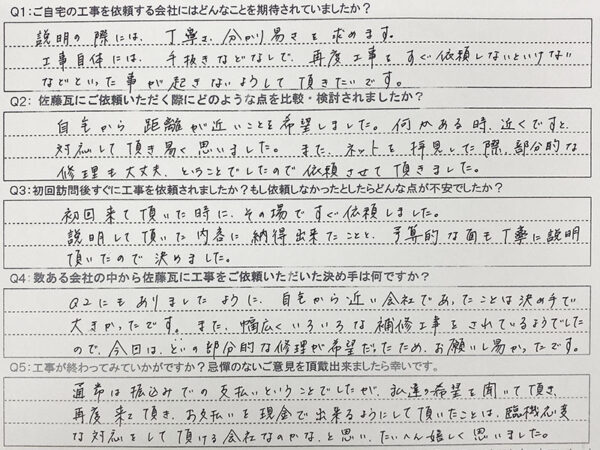 Q1：ご自宅の工事を依頼する会社にはどんなことを期待されていましたか？
説明の際には、丁寧さ、分かり易さを求めます。
工事自体には、手抜きなどなしで、再度工事をすぐ依頼しないといけない
などといった事が起きないようして頂きたいです。
Q2： 佐藤瓦にご依頼いただく際にどのような点を比較・検討されましたか？
自宅から距離が近いことを希望しました。何かある時、近くですと、
対応して頂き易く思いました。また、ネットを拝見した際、部分的な
修理も大丈夫、ということでしたので依頼させて頂きました。
Q3：初回訪問後すぐに工事を依頼されましたか？もし依頼しなかったとしたらどんな点が不安でしたか？
初回来て頂いた時に、その場ですぐ依頼しました。
説明して頂いた内容に納得出来たことと、予算的な面も丁寧に説明
頂いたので決めました。
Q4：数ある会社の中から佐藤瓦に工事をご依頼いただいた決め手は何ですか？
Q2にもありましたように、自宅から近い会社であったことは決め手で
大きかったです。また、幅広くいろいろな補修工事をされているようでした
ので、今回は、どの部分的な修理が希望だったため、お願いし易かったです。
Q5：工事が終わってみていかがですか？忌憚のないご意見を頂戴出来ましたら幸いです。
通常は振込みでの支払いということでしたが、私達の希望を聞いて頂き、
再度来て頂き、お支払いを現金で出来るようにして頂いたことは、臨機応変
な対応をして頂ける会社なのかな、と思い、たいへん嬉しく思いました。